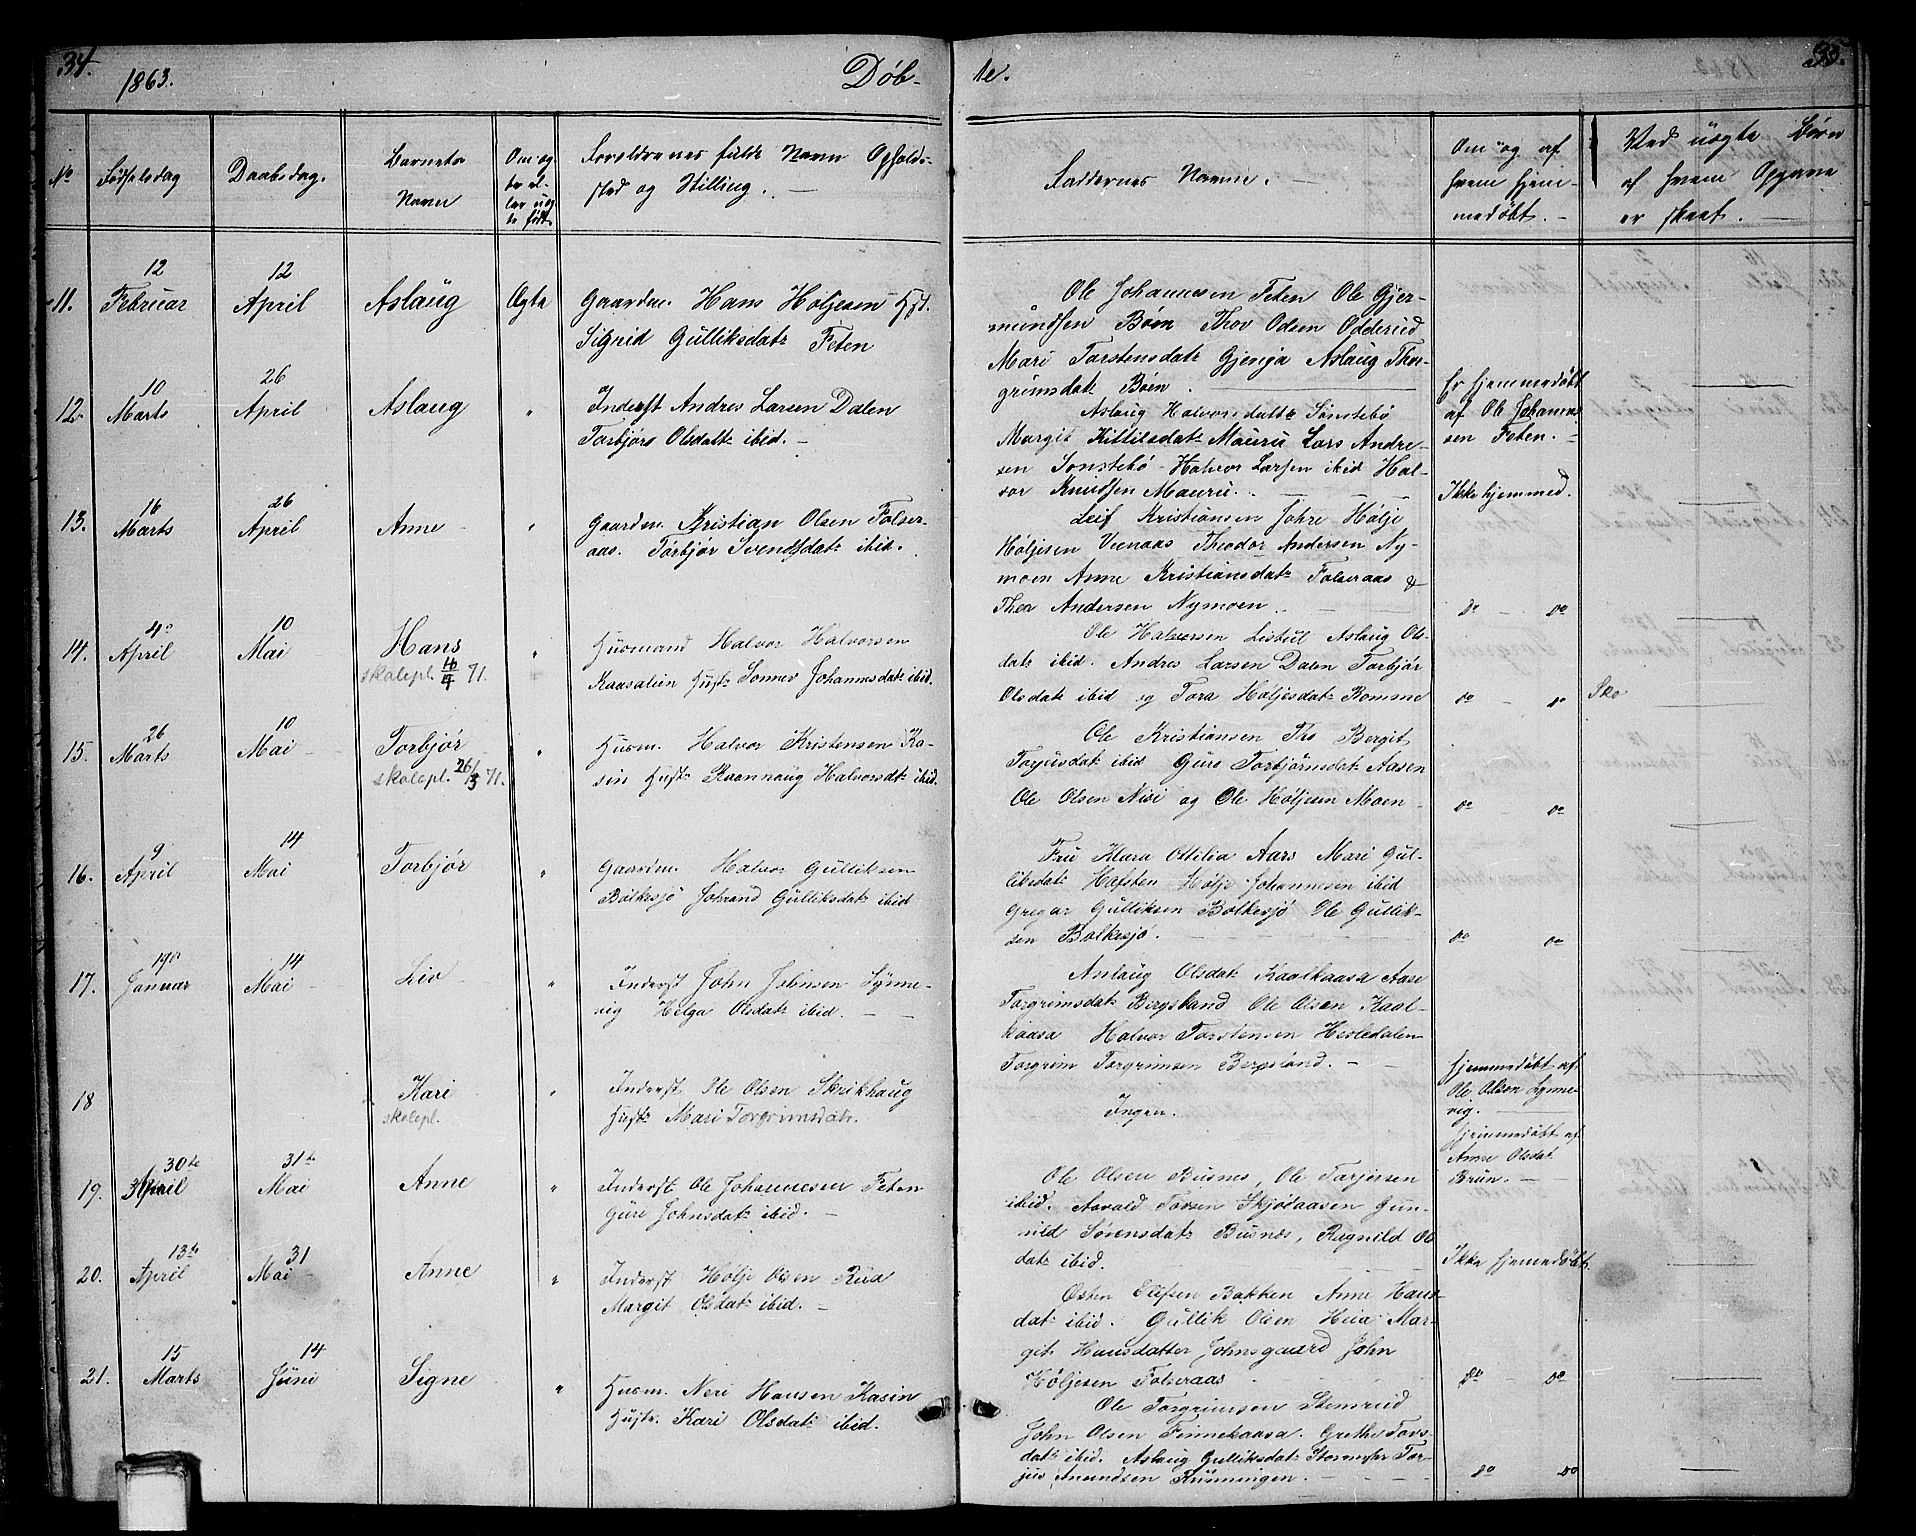 34.
1863.
Døb-
te.
35.
No
Fødselsdag
Daabsdag.
Barnets
Navn
Om æg-
te el-
ler uæg-
te født.
Forældrenes fulde Navn Opholds-
sted og Stilling. —
Faddernes Navne. —
Om og af
hvem hjem-
medøbt. —
Ved uægte Børn
af hvem Opgave
er skeet. —
11.
12
Februar
12
April
Aslaug
Ægte
Gaardm. Hans Høljesen Hst.
Signid Gulliksdatr Feten
Ole Johannesen Feten Ole Gjer-
mundsen Bøen Thov Odsen Odderud
Mari Torstensdatr Gjenja Aslaug Thor-
grimsdatr Bøen.
12.
10
Marts
26
April
Aslaug
"
Inderst Andres Larsen Dalen
Torbjørg Olsdatr ibid. —
Aslaug Halvorsdattr Sønstebø
Margit Kittilsdatr Mauru Lars Andre-
sen Sønstebø Halvor Larsen ibid Hal-
vor Knudsen Mauru.
Er hjemmedøbt
af Ole Johannes-
sen Feten. —
Ikke hjemmed.
13.
16
Marts
26
April
Anne
"
Gaardm. Kristian Olsen Folser-
aas. Torbjør Svendsdatr ibid.
Leif Kristiansen Johre Hølje
Høljesen Vienaas Theodor Andersen Ny-
moen Anne Kristiansdatr Folseraas &
Thor Andersen Nymoen.
do — do
14.
4de
April
10
Mai
Hans
skolepl. 16/4 71.
"
Husmand Halvor Halvorsen
Kaasalien Hustr Sønnev Johannesdatr ibid.
Ole Halvorsen Listul Aslaug Ols-
datr ibid. Andres Larsen Dalen Torbjør
Olsdatr ibid og Tora Høljesdatr Romme
do — do
Sko
15.
26
Marts
10
Mai
Torbjør
skolepl. 26/3 71.
"
Husm. Halvor Kristensen Ka-
sin Hustr Rannaug Halvorsdt ibid.
Ole Kristiansen Tro Bergit
Tovsdatr ibid Guro Torbjørnsdatr Aasen
Ole Olsen Nisi og Ole Høljesen Moen
do — do
16.
9
April
14
Mai
Torbjør
"
Gaardm. Halvor Gulliksen
Bolkesjø Jorand Gulliksdatr ibid
Fru Klara Ottilia Aars Mari Gul-
liksdatr Hafsten Hølje Johannesen ibid
Gregar Gulliksen Bolkesjø Ole Gullik-
sen Bolkesjø.
do — do
17.
19de
Januar
14
Mai
Liv
"
Inderst John Johnsen Lynne-
vig Helga Olsdatr ibid. —
Anlaug Olsdatr Kaalkaasa Aase
Torgrimsdatr Bergsland Ole Olsen Kaal-
kaasa Halvor Torstensen Herledalen
Torgrim Torgrimsen Bergsland. —
Hjemmedøbt af
Ole Olsen Lynne-
vig. —
18
Kari
skolepl.
"
Inderst Ole Olsen Skrikhaug
Hustr Mari Torgrimsdatr.
Ingen.
Hjemmedøbt af
Anne Olsdat.
Brun. —
19.
30te
April
31te
Mai
Anne
"
Inderst Ole Johannesen Feten
Guri Johnsdatr ibid. —
Ole Olsen Busnes, Ole Torjersen
ibid. Aavald Torsen Skjødaasen Gun-
nild Sørensdatr Busnes, Ragnild Ols
datr ibid.
Ikke hjemmedøbt.
20.
13de
April
31
Mai
Anne
"
Inderst Hølje Olsen Rua
Margit Olsdatr ibid. —
Østen Leifsen Bakken Anne Hans-
datr ibid. Gullik Olsen Heia Mar-
git Hansdatter Johnsgaard John
Høljesen Folseraas
do — do
21.
15
Marts
14
Juni
Signe
"
Husm. Neri Hansen Kasin
Hustr. Kari Olsdatr ibid.
Ole Torgrimsen Stenrud
John Olsen Finnekaasa. Grethe Tovs-
datr ibid. Aslaug Gulliksdatr Tor-
jus Amundsen Runningen.
do — do